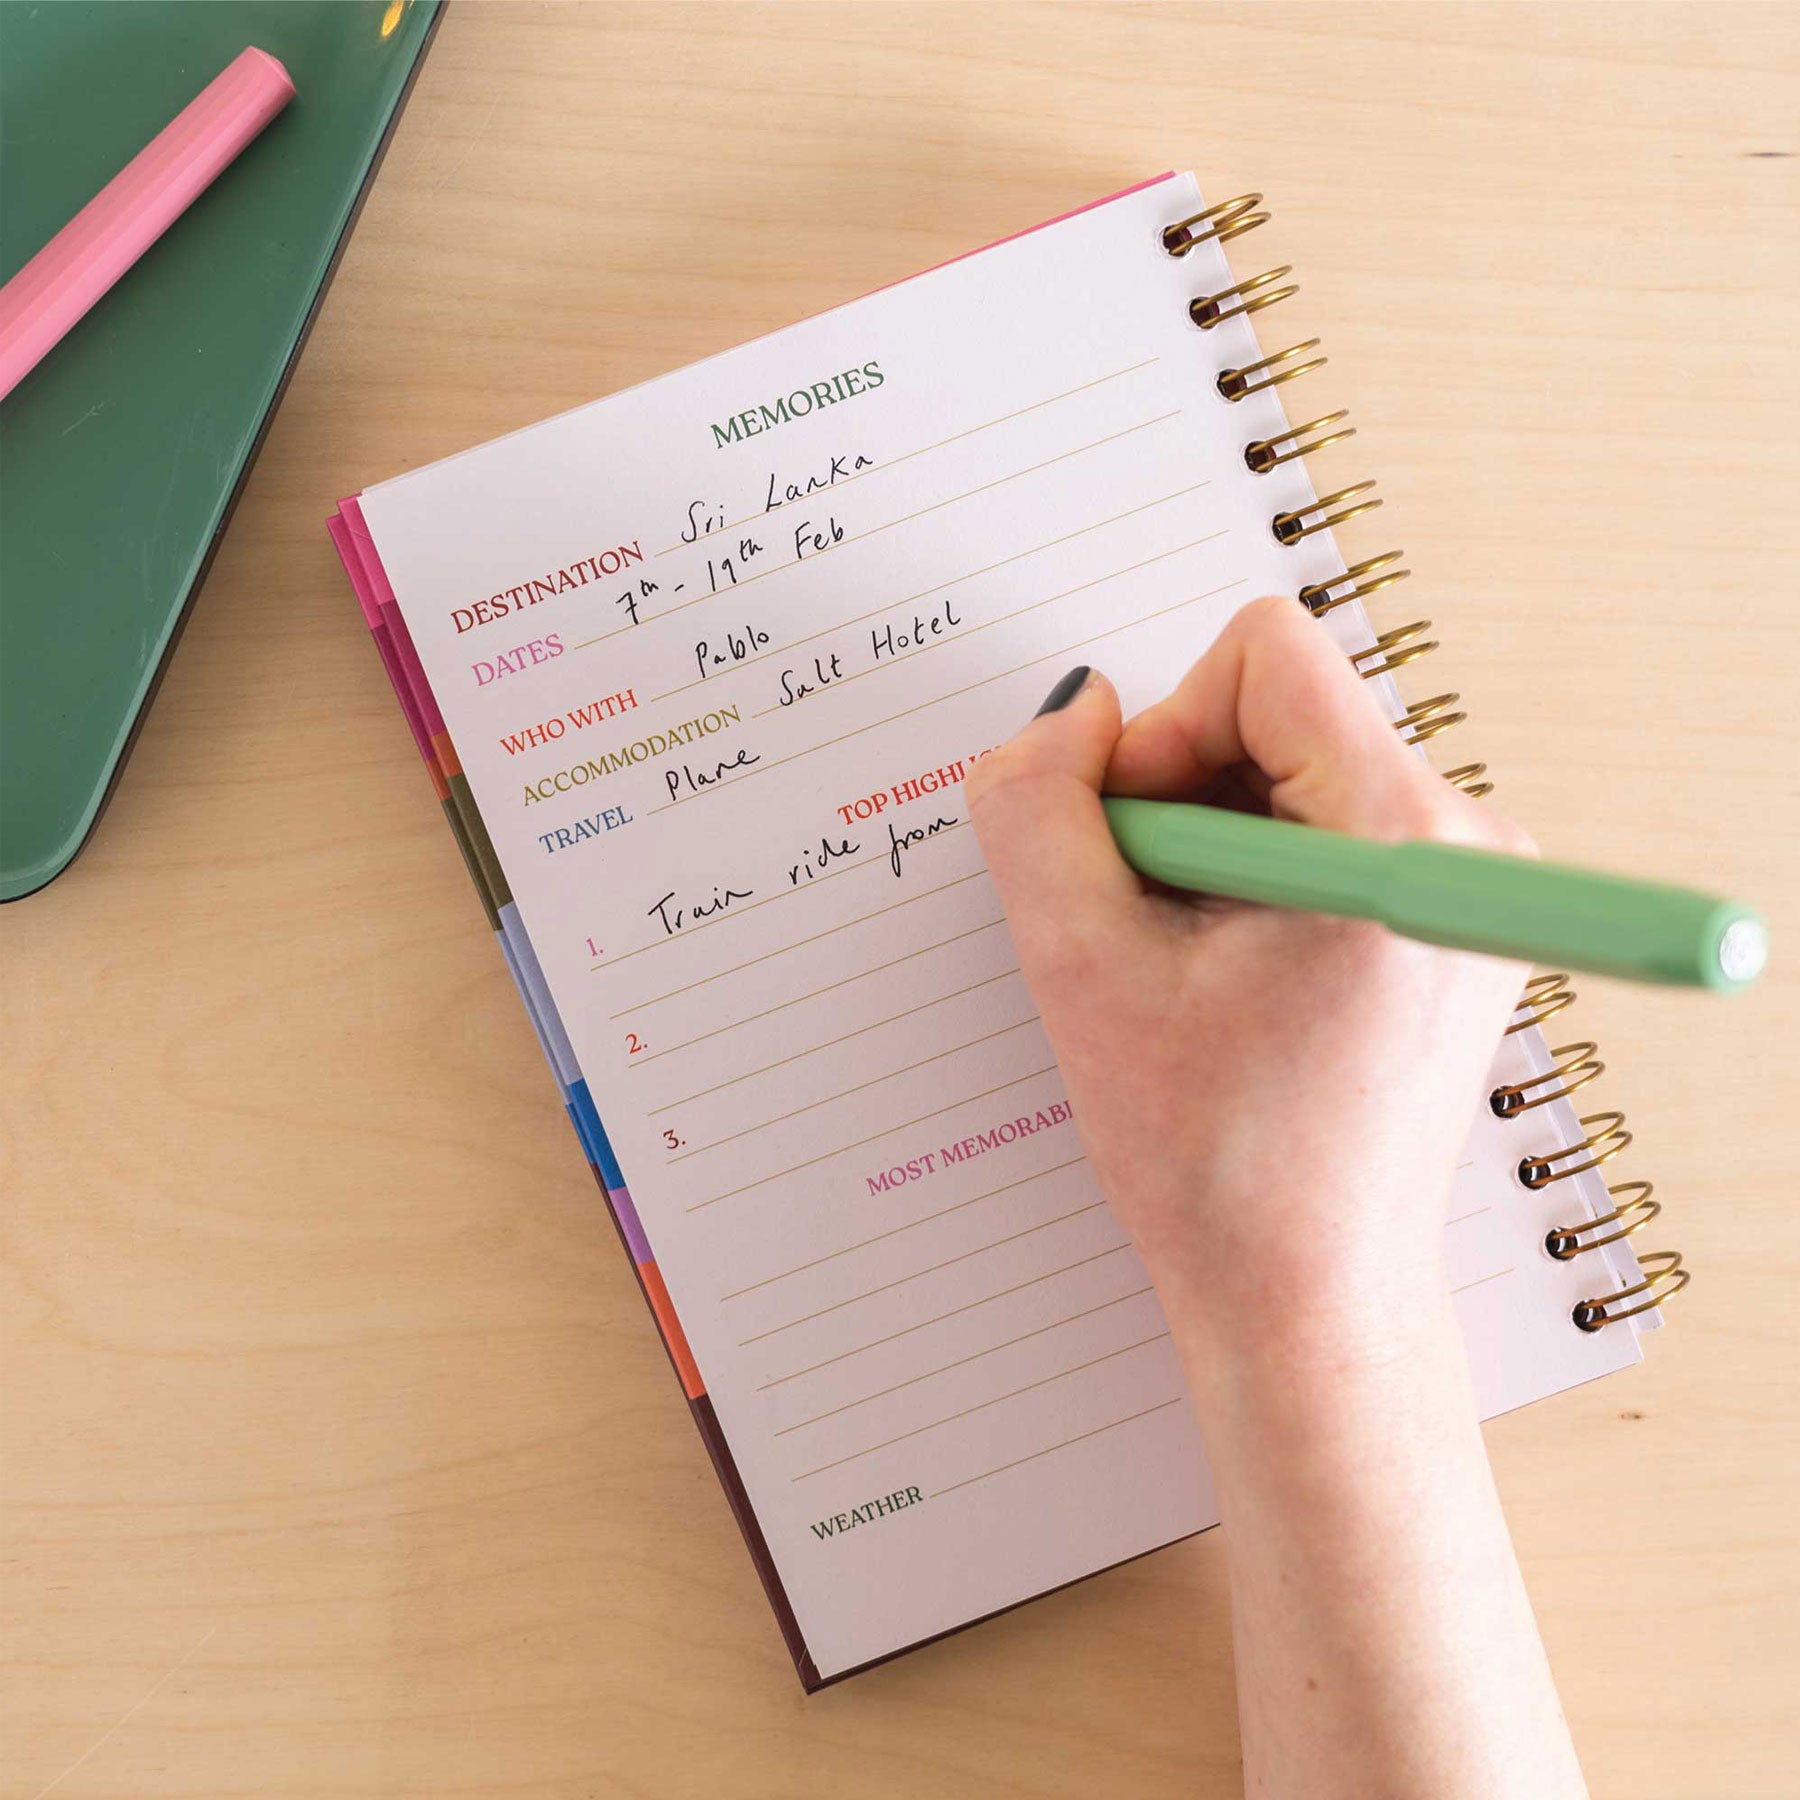 MEMORIES
DESTINATION Sri Lanka
DATES 7th - 19th Feb
WHO WITH Pablo
ACCOMMODATION Salt Hotel
TRAVEL Plane
TOP
1. Train ride from
2.
3.
MOST
WEATHER